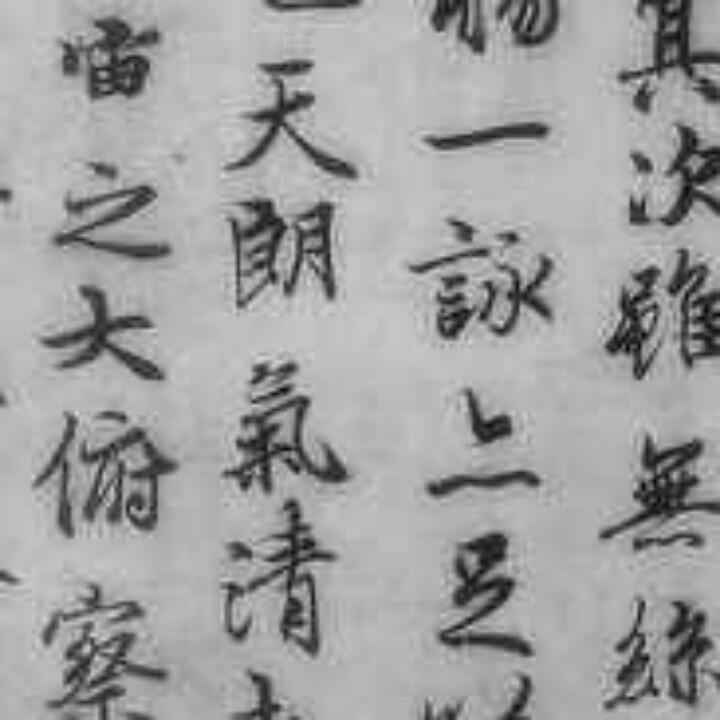 其次雖無絲
觴一詠亦足
天朗氣清
宙之大俯察